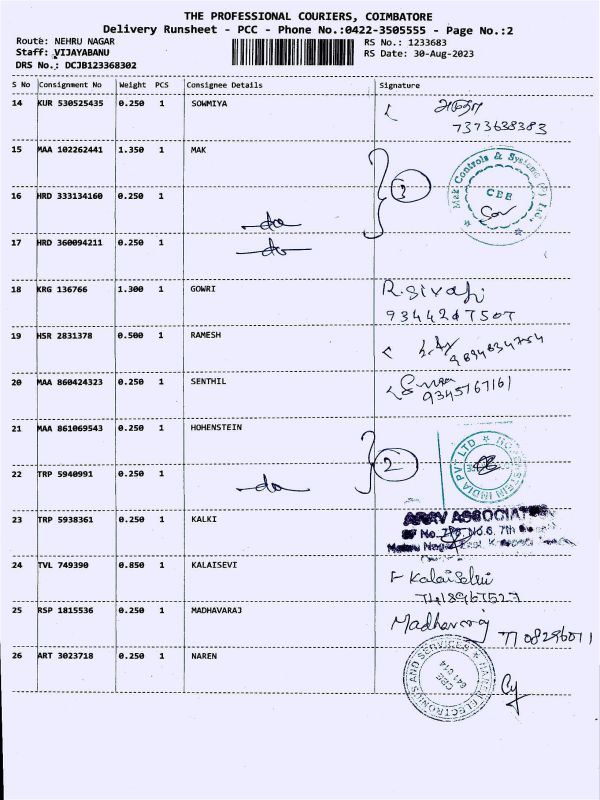 THE PROFESSIONAL COURIERS, COIMBATORE
Delivery Runsheet - PCC - Phone No.:0422-3505555 - Page No.:2
Route: NEHRU NAGAR RS No.: 1233683
Staff: VIJAYABANU RS Date: 30-Aug-2023
DRS No.: DCJB123368302
S No Consignment No Weight PCS Consignee Details Signature
14 KUR 530525435 0.250 1 SOWMIYA
7373638383
15 MAA 102262441 1.350 1 MAK
Mak Controls & Systems (P) Ltd.
CBE
3
16 HRD 333134160 0.250 1
do
17 HRD 360094211 0.250 1
do
18 KRG 136766 1.300 1 GOWRI R.Sivaji
9344247507
19 HSR 2831378 0.500 1 RAMESH
9894834754
20 MAA 860424323 0.250 1 SENTHIL
9345767161
21 MAA 861069543 0.250 1 HOHENSTEIN
HOHENSTEIN INDIA PVT LTD
2
22 TRP 5940991 0.250 1
do
23 TRP 5938361 0.250 1 KALKI ARAV ASSOCIATES
No.6, 7th
24 TVL 749390 0.850 1 KALAISEVI Kalaiselvi
7418967527
25 RSP 1815536 0.250 1 MADHAVARAJ Madhavaraj
7708296011
26 ART 3023718 0.250 1 NAREN
NAREN ELECTRONICS AND SERVICES
CBE
641 014